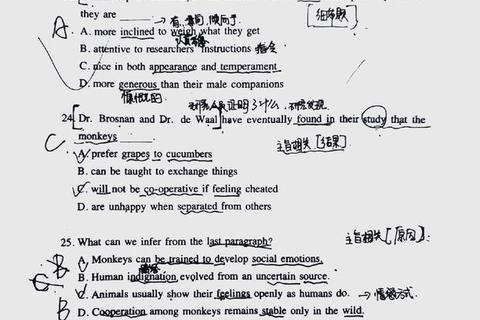 they are ______ 有意向，倾向于 [细节题]
A. A. more inclined to weigh what they get
认真考虑
B. attentive to researchers' instructions 指令
C. nice in both appearance and temperament
D. more generous than their male companions
慷慨大方
24. [Dr. Brosnan and Dr. de Waal] have eventually found in their study that the
C monkeys ______ 主旨相关 [结果]
A. prefer grapes to cucumbers
B. can be taught to exchange things
C. will not be co-operative if feeling cheated
D. are unhappy when separated from others
25. What can we infer from the last paragraph? 主旨相关 [原因]
B A. Monkeys can be trained to develop social emotions.
B. Human indignation evolved from an uncertain source.
C C. Animals usually show their feelings openly as humans do. → 情感方式
B D. Cooperation among monkeys remains stable only in the wild.